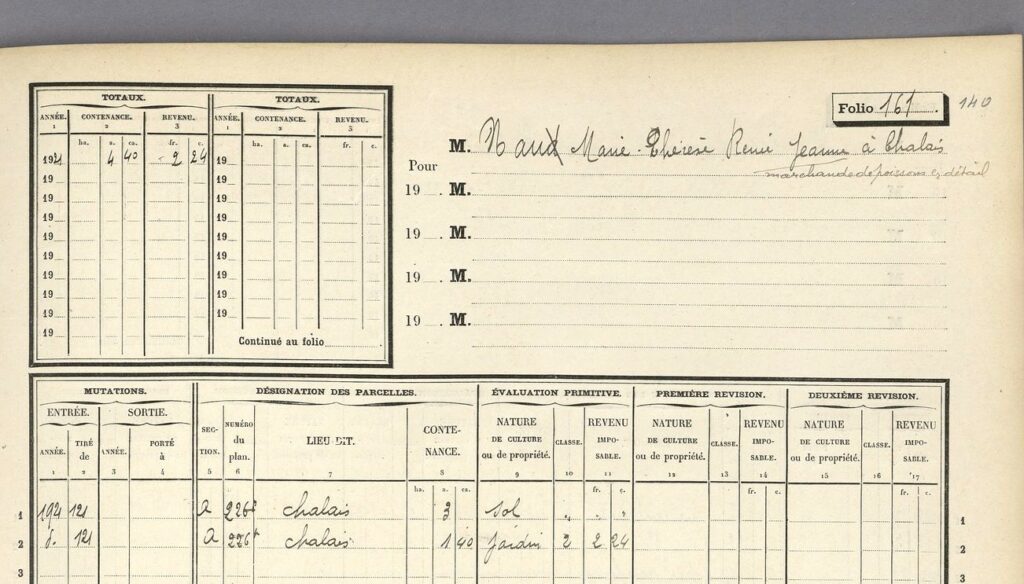 TOTAUX. TOTAUX.
ANNÉE. CONTENANCE. REVENU. ANNÉE. CONTENANCE. REVENU.
1 2 3 1 2 3
ha. a. ca. fr. c. ha. a. ca. fr. c.
1921 4 40 2 24 19
19 19
19 19
19 19
19 19
19 19
19 19
19 19
19 19
19 Continué au folio
Folio 161. 140
Pour M. Naud Marie-Thérèse René Jeanne à Chalais
marchande de poissons en détail
19 M.
19 M.
19 M.
19 M.
MUTATIONS. DÉSIGNATION DES PARCELLES. ÉVALUATION PRIMITIVE. PREMIÈRE REVISION. DEUXIÈME REVISION.
ENTRÉE. SORTIE. SECTION. NUMÉRO du plan. LIEU-DIT. CONTENANCE. NATURE DE CULTURE ou de propriété. CLASSE. REVENU IMPOSABLE. NATURE DE CULTURE ou de propriété. CLASSE. REVENU IMPOSABLE. NATURE DE CULTURE ou de propriété. CLASSE. REVENU IMPOSABLE.
ANNÉE. TIRÉ de ANNÉE. PORTÉ à
1 2 3 4 5 6 7 8 9 10 11 12 13 14 15 16 17
ha. a. ca. fr. c. fr. c. fr. c.
1 1921 121 A 226 Chalais 3 sol " " " 1
2 d. 121 A 226 Chalais 1 40 jardin 2 2 24 2
3 3